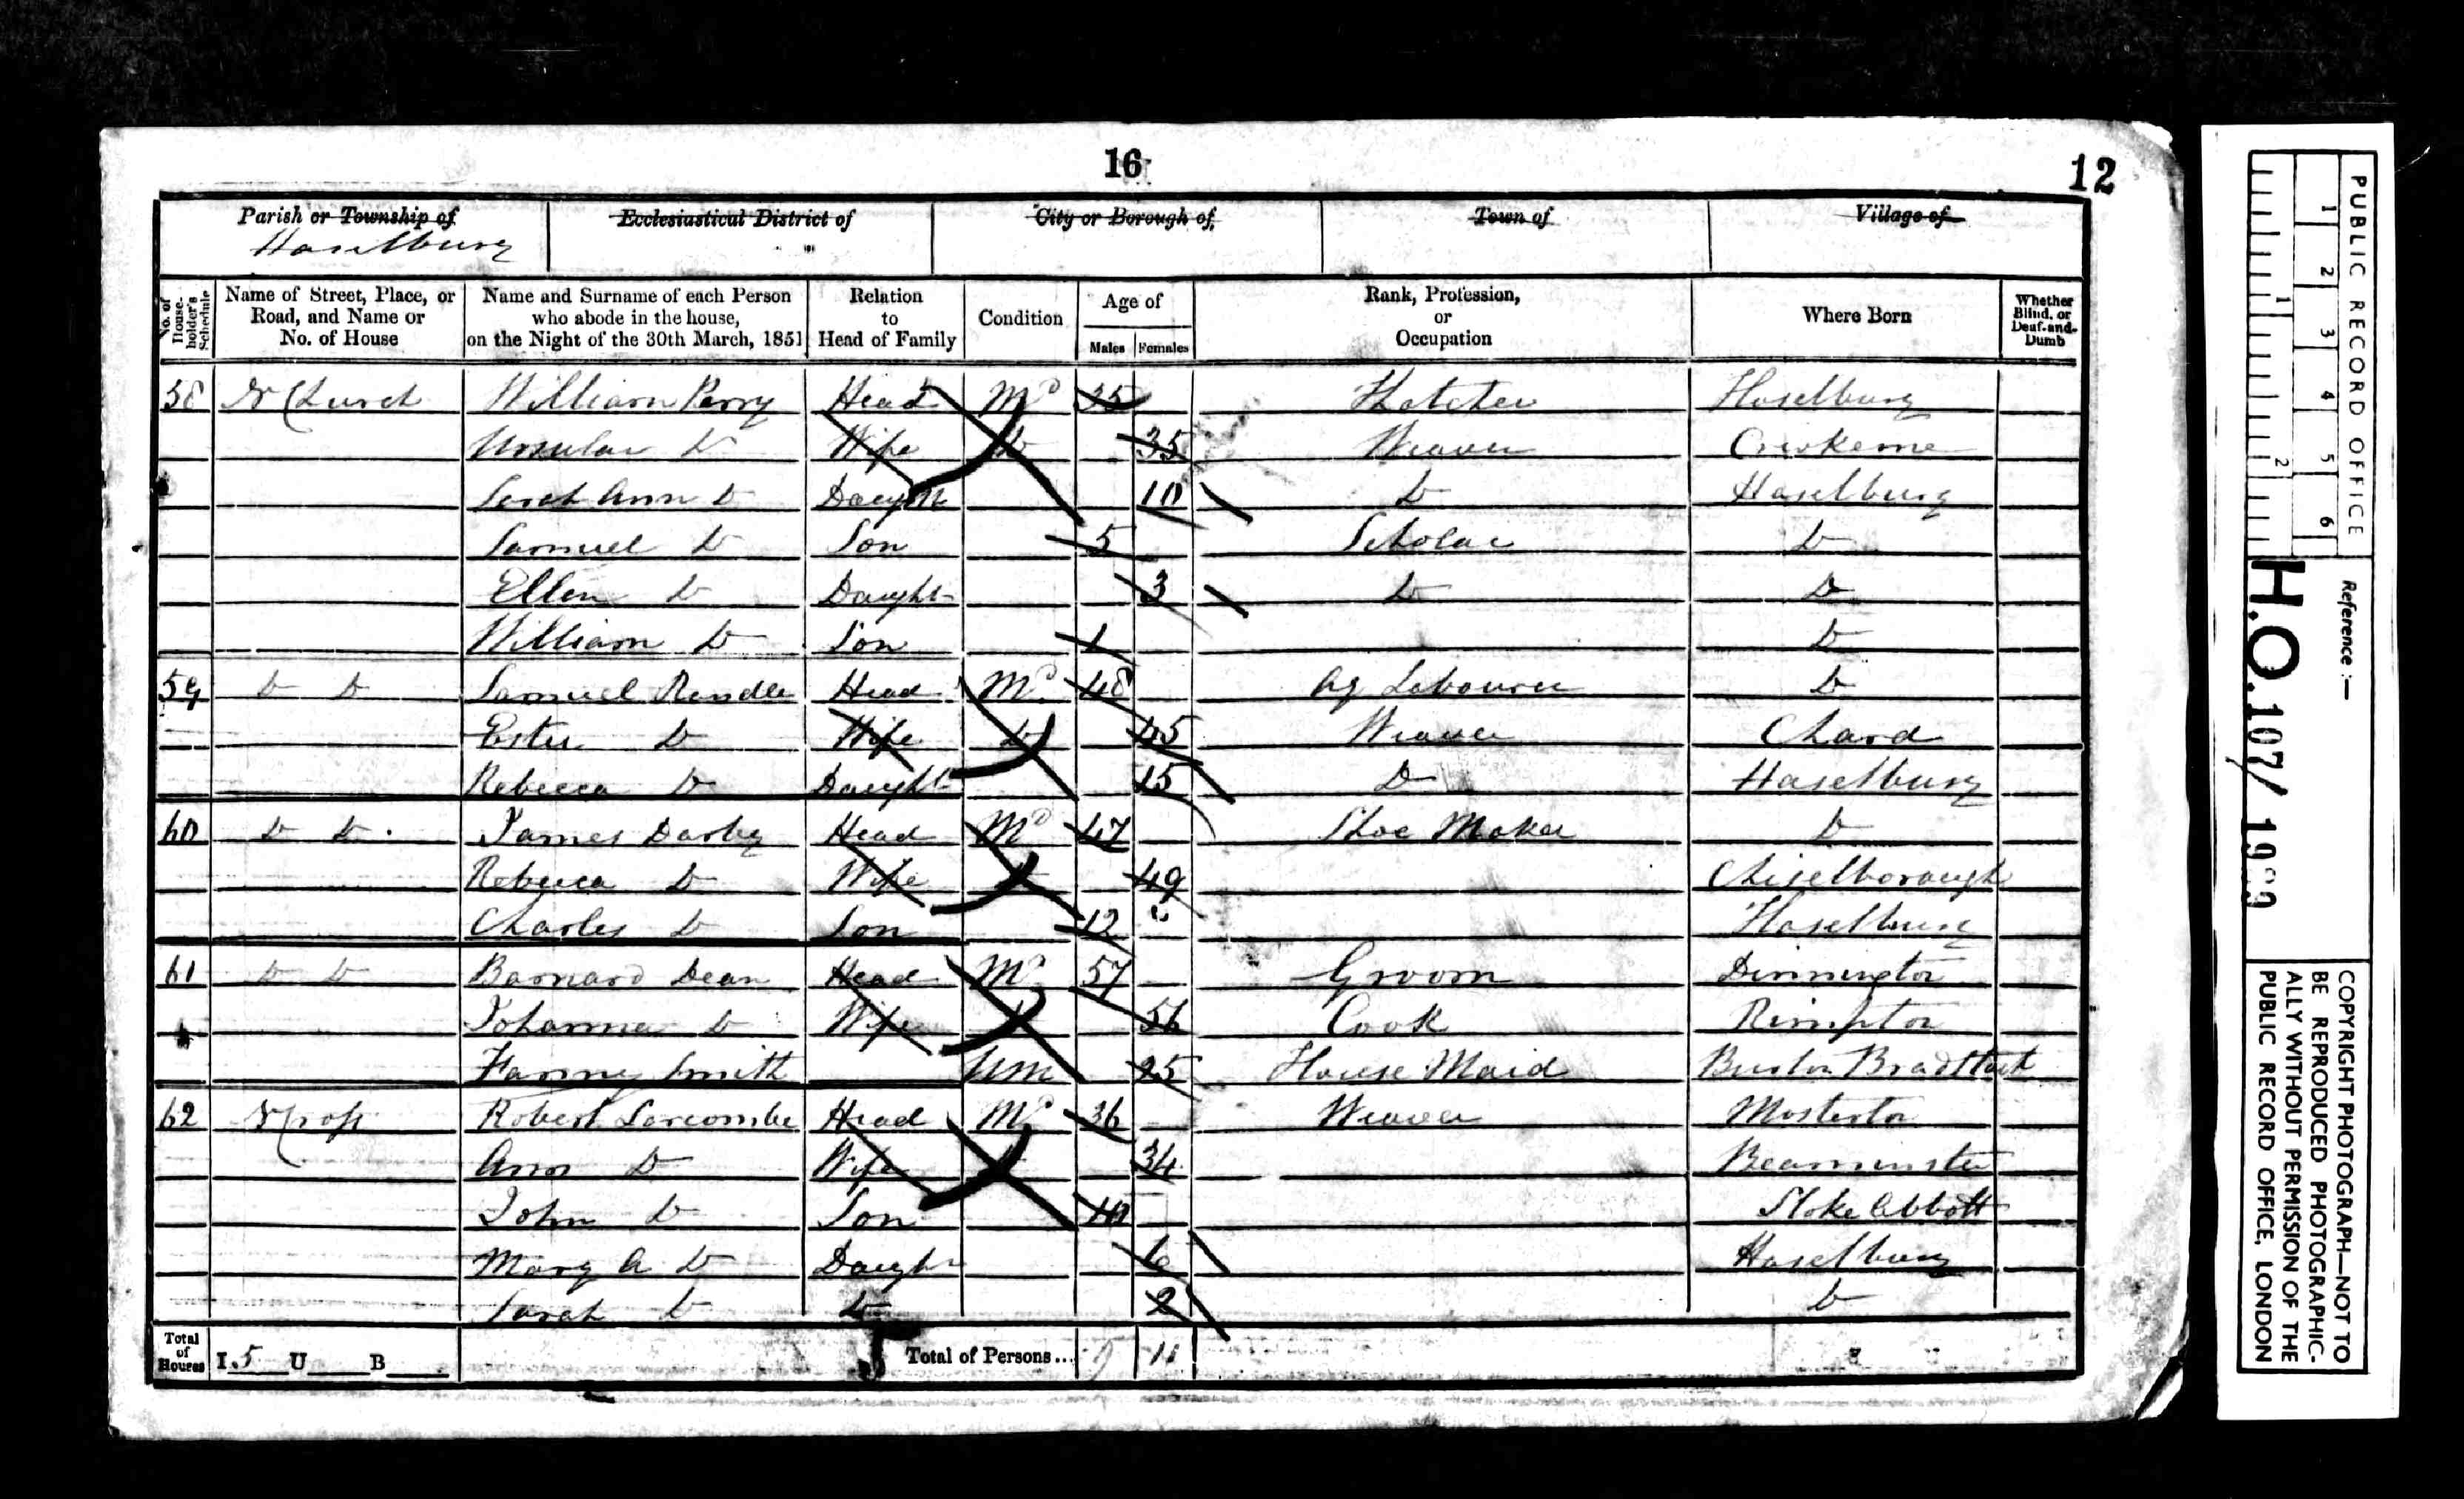 16
12
Parish or Township of
Haselbury
Ecclesiastical District of
City or Borough of
Town of
Village of
No. of House-holder's Schedule
Name of Street, Place, or Road, and Name or No. of House
Name and Surname of each Person who abode in the house, on the Night of the 30th March, 1851
Relation to Head of Family
Condition
Age of
Males Females
Rank, Profession, or Occupation
Where Born
Whether Blind, or Deaf-and-Dumb
58 Nr Church William Perry Head Md 35 Thatcher Haselbury
Ursular Do Wife Do 35 Weaver Crewkerne
Sarah Ann Do Daught 10 Do Haselbury
Samuel Do Son 5 Scholar Do
Ellen Do Daught 3 Do Do
William Do Son 1 Do
59 Do Do Samuel Rendle Head Md 48 Ag Labourer Do
Ester Do Wife Do 45 Weaver Chard
Rebecca Do Daught 15 Do Haselbury
60 Do Do James Darby Head Md 47 Shoe Maker Do
Rebecca Do Wife 49 Chiselborough
Charles Do Son 12 Haselbury
61 Do Do Barnard Dean Head Md 57 Groom Dinnington
Johanna Do Wife 56 Cook Rimpton
Fanny Smith UM 25 House Maid Burton Bradstock
62 Nr Cross Robert Larcombe Head Md 36 Weaver Mosterton
Ann Do Wife 34 Beaminster
John Do Son 10 Stoke Abbott
Mary A Do Daught 6 Haselbury
Sarah Do Do 2 Do
Total of Houses I. 5 U B
5 Total of Persons... 9 11
PUBLIC RECORD OFFICE
1 2 3 4 5 6
1 2
Reference :—
H.O. 107/
COPYRIGHT PHOTOGRAPH—NOT TO
BE REPRODUCED PHOTOGRAPHIC-
ALLY WITHOUT PERMISSION OF THE
PUBLIC RECORD OFFICE, LONDON